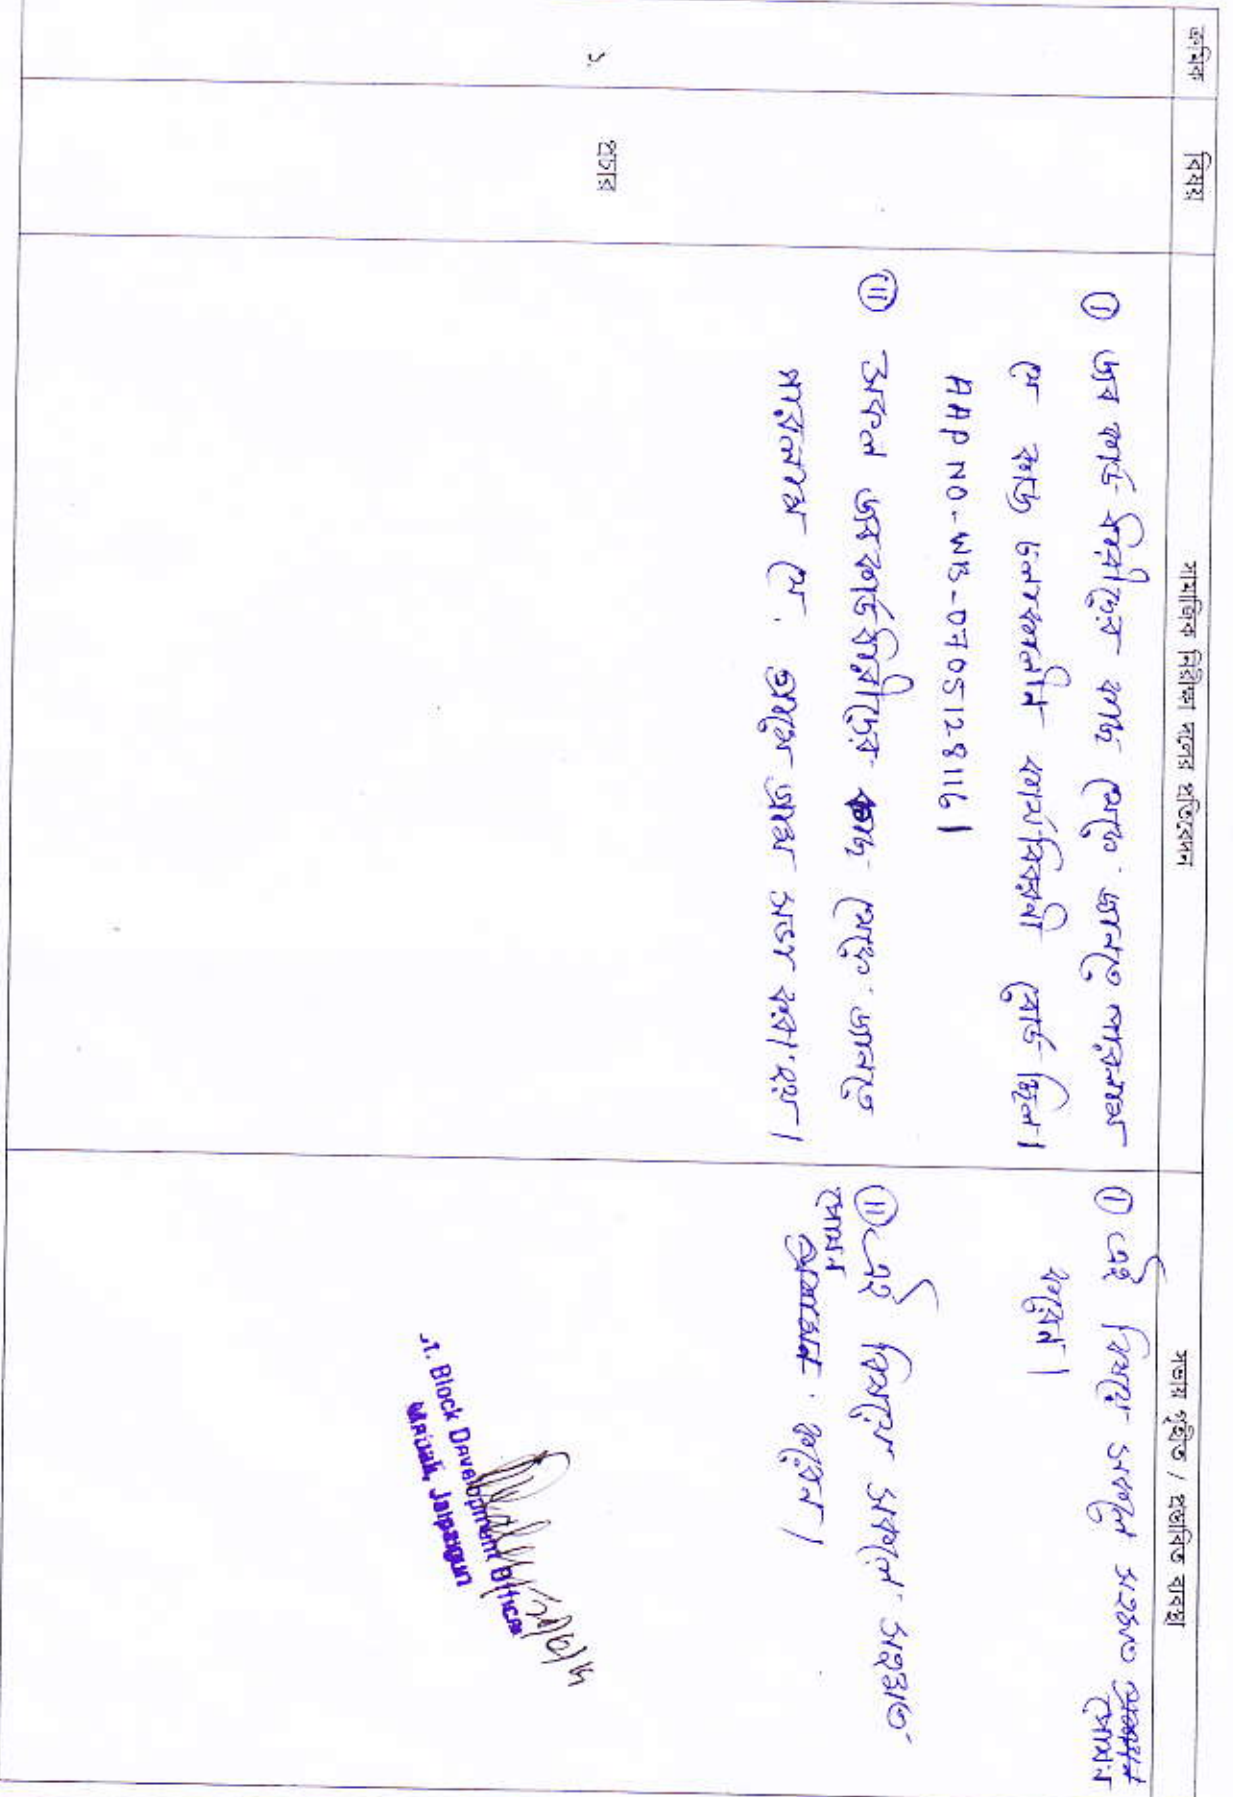 ক্রমিক
বিষয়
সামাজিক নিরীক্ষা দলের প্রতিবেদন
সভায় গৃহীত / প্রস্তাবিত ব্যবস্থা
১.
প্রচার
① জব কার্ড ধারীদের কাছ থেকে জানতে পারলাম
যে কাজ চলাকালীন কার্যবিবরণী বোর্ড ছিল।
AAP NO-WB-0705128116।
② সকল জবকার্ডধারীদের কাছ থেকে জানতে
পারলাম যে গ্রাম সভা করা হয়।
① এই বিষয়ে সকলে সহমত পোষন
করেন।
② এই বিষয়ে সকলে সহমত
পোষন করেন।
Jt. Block Development Officer
Jalpaiguri